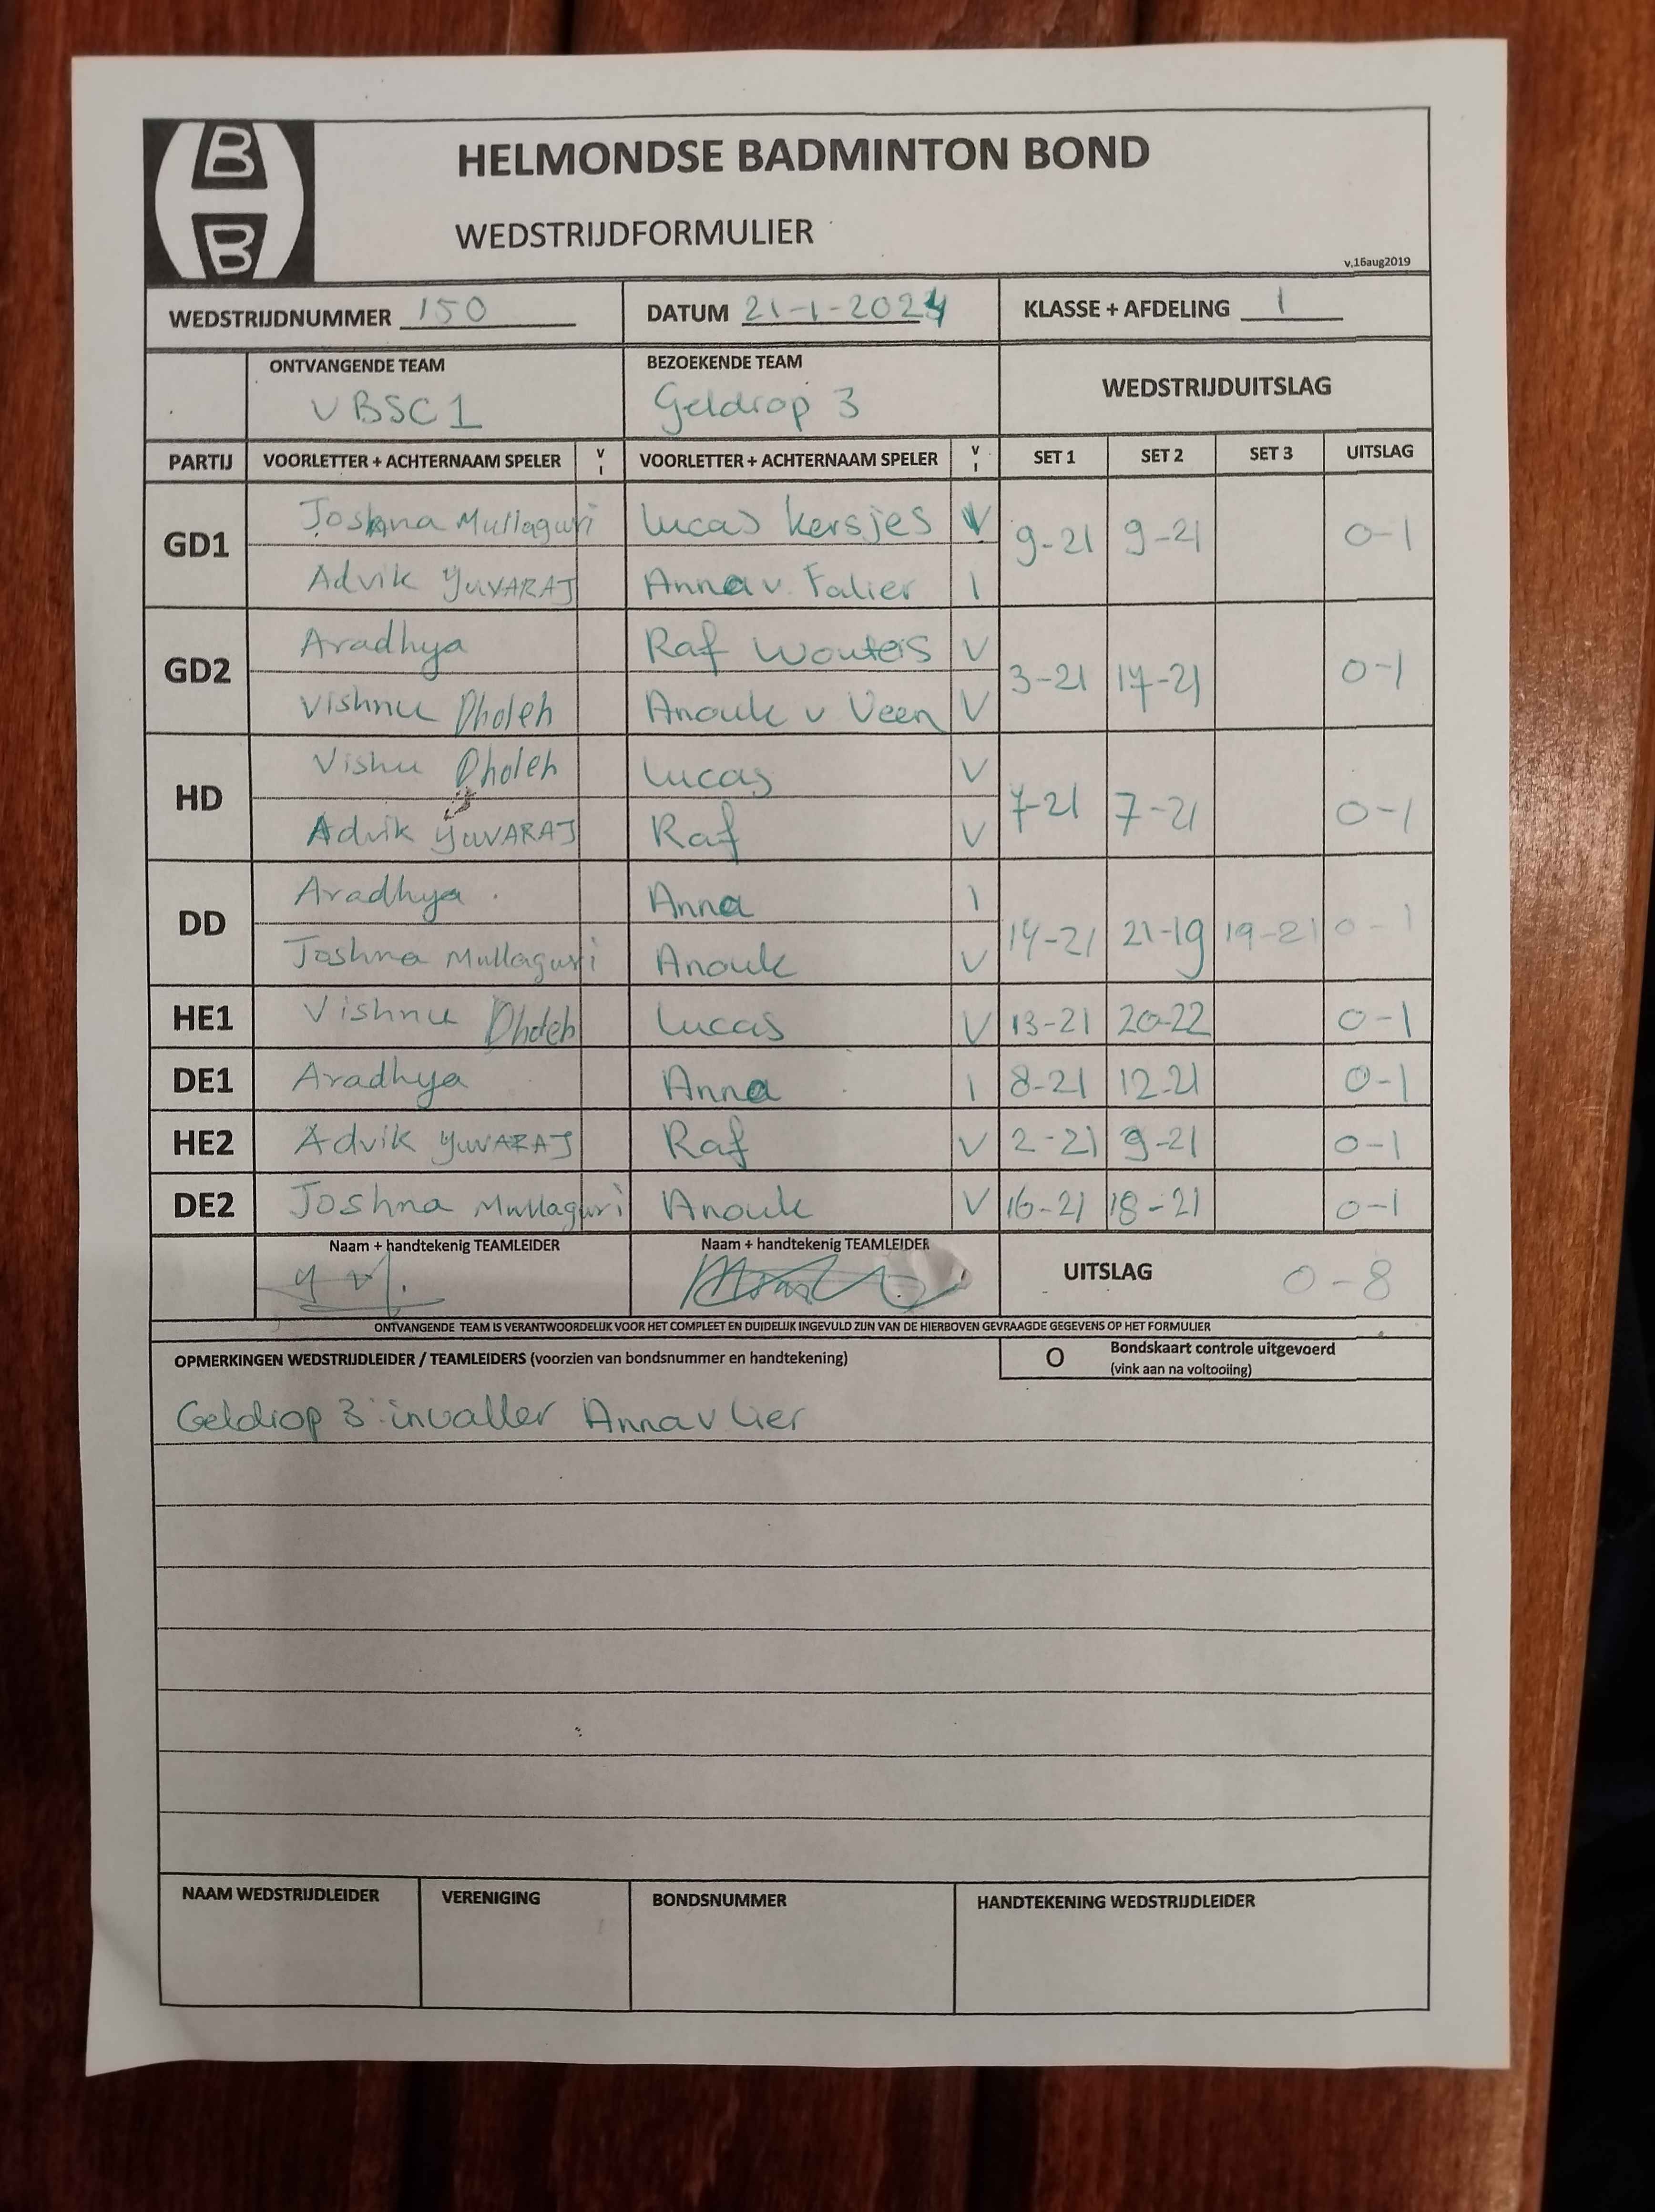 B
B
HELMONDSE BADMINTON BOND
WEDSTRIJDFORMULIER
v.16aug2019
WEDSTRIJDNUMMER 150 DATUM 21-1-2024 KLASSE + AFDELING 1
ONTVANGENDE TEAM BEZOEKENDE TEAM WEDSTRIJDUITSLAG
VBSC1 Geldrop 3
PARTIJ VOORLETTER + ACHTERNAAM SPELER V I VOORLETTER + ACHTERNAAM SPELER V I SET 1 SET 2 SET 3 UITSLAG
GD1 Joshna Mullaguri Lucas Kersjes V 9-21 9-21 0-1
Advik YUVARAJ Anna v. Falier I
GD2 Aradhya Raf Wouters V 3-21 17-21 0-1
Vishnu Dholeh Anouk v Veen V
HD Vishu Dholeh Lucas V 7-21 7-21 0-1
Advik YUVARAJ Raf V
DD Aradhya Anna I 14-21 21-19 19-21 0-1
Joshna Mullaguri Anouk V
HE1 Vishnu Dholeh Lucas V 13-21 20-22 0-1
DE1 Aradhya Anna I 8-21 12-21 0-1
HE2 Advik YUVARAJ Raf V 2-21 9-21 0-1
DE2 Joshna Mullaguri Anouk V 16-21 18-21 0-1
Naam + handtekenig TEAMLEIDER Naam + handtekenig TEAMLEIDER UITSLAG 0-8
ONTVANGENDE TEAM IS VERANTWOORDELIJK VOOR HET COMPLEET EN DUIDELIJK INGEVULD ZIJN VAN DE HIERBOVEN GEVRAAGDE GEGEVENS OP HET FORMULIER
OPMERKINGEN WEDSTRIJDLEIDER / TEAMLEIDERS (voorzien van bondsnummer en handtekening) O Bondskaart controle uitgevoerd
(vink aan na voltooiing)
Geldrop 3: invaller Anna v Lier
NAAM WEDSTRIJDLEIDER VERENIGING BONDSNUMMER HANDTEKENING WEDSTRIJDLEIDER